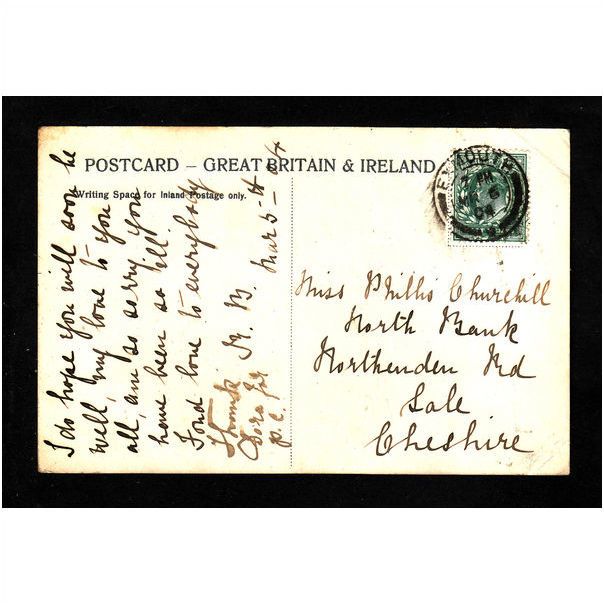 POSTCARD – GREAT BRITAIN & IRELAND
Writing Space for Inland Postage only.
EXMOUTH
I do hope you will soon be
well, my love to you
all, am so sorry you
have been so ill.
Fond love to everybody
Thank Dora for
p.c.
Mar 5 – 04
Miss Phillis Churchill
North Bank
Northenden Rd
Sale
Cheshire